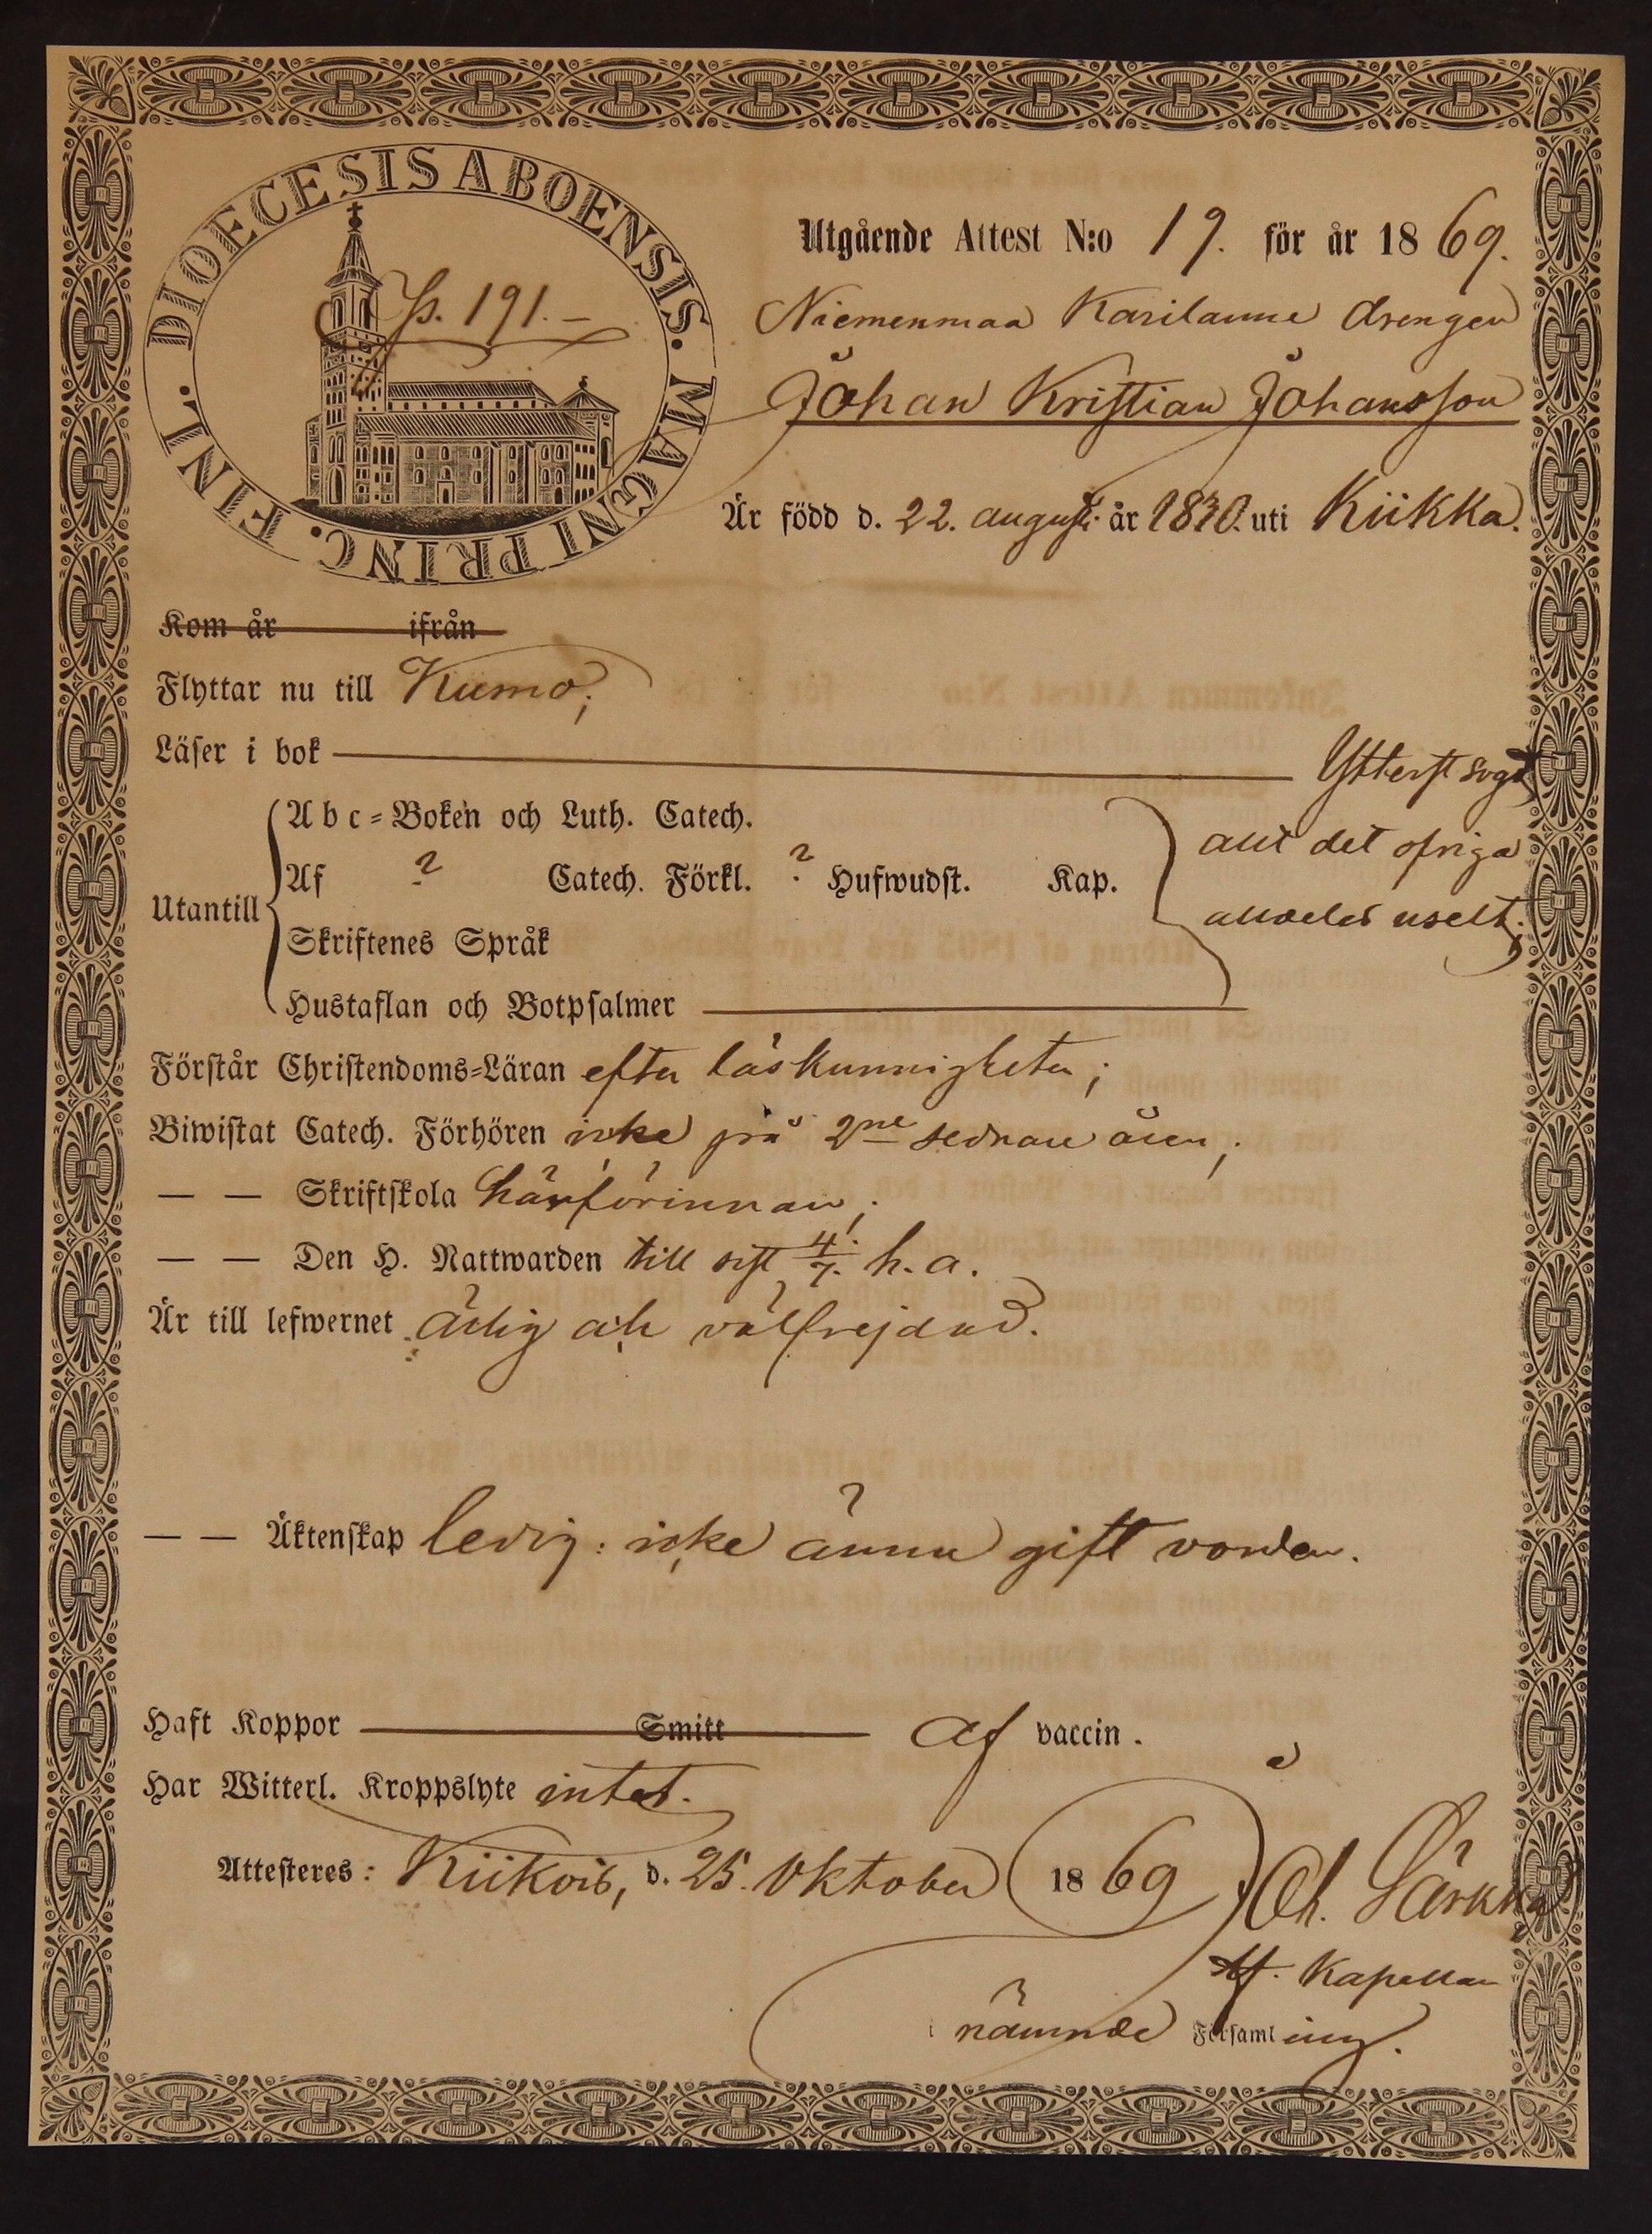 DIOECESIS ABOENSIS. MAGNI PRINC. FINL.
p. 191.
Utgående Attest N:o 19. för år 1869.
Niemenmaa Karilanne drengen
Johan Kristian Johansson
Är född d. 22. augusti år 1830. uti Kiikka.
Kom år ifrån
Flyttar nu till Kumo;
Läser i bok Ytterst svagt
Abc-Boken och Luth. Catech. allt det öfriga
Af ? Catech. Förkl. ? Hufwudst. Kap.
Utantill alldeles uselt;
Skriftenes Språk
Hustaflan och Botpsalmer
Förstår Christendoms-Läran efter läskunnigheten;
Biwistat Catech. Förhören icke på 2ne sednare åren;
— — Skriftskola härförinnan;
— — Den H. Nattwarden till sist 4/7. h. a.
Är till lefwernet ärlig och välfrejdad.
— — Äktenskap ledig: icke ännu gift vorden.
Haft Koppor Smitt af vaccin.
Har Witterl. Kroppslyte intet.
Attesteres: Kiikois, d. 25. Oktober 1869
Ch. Särkkä
Kapellan
i nämnde Församling.